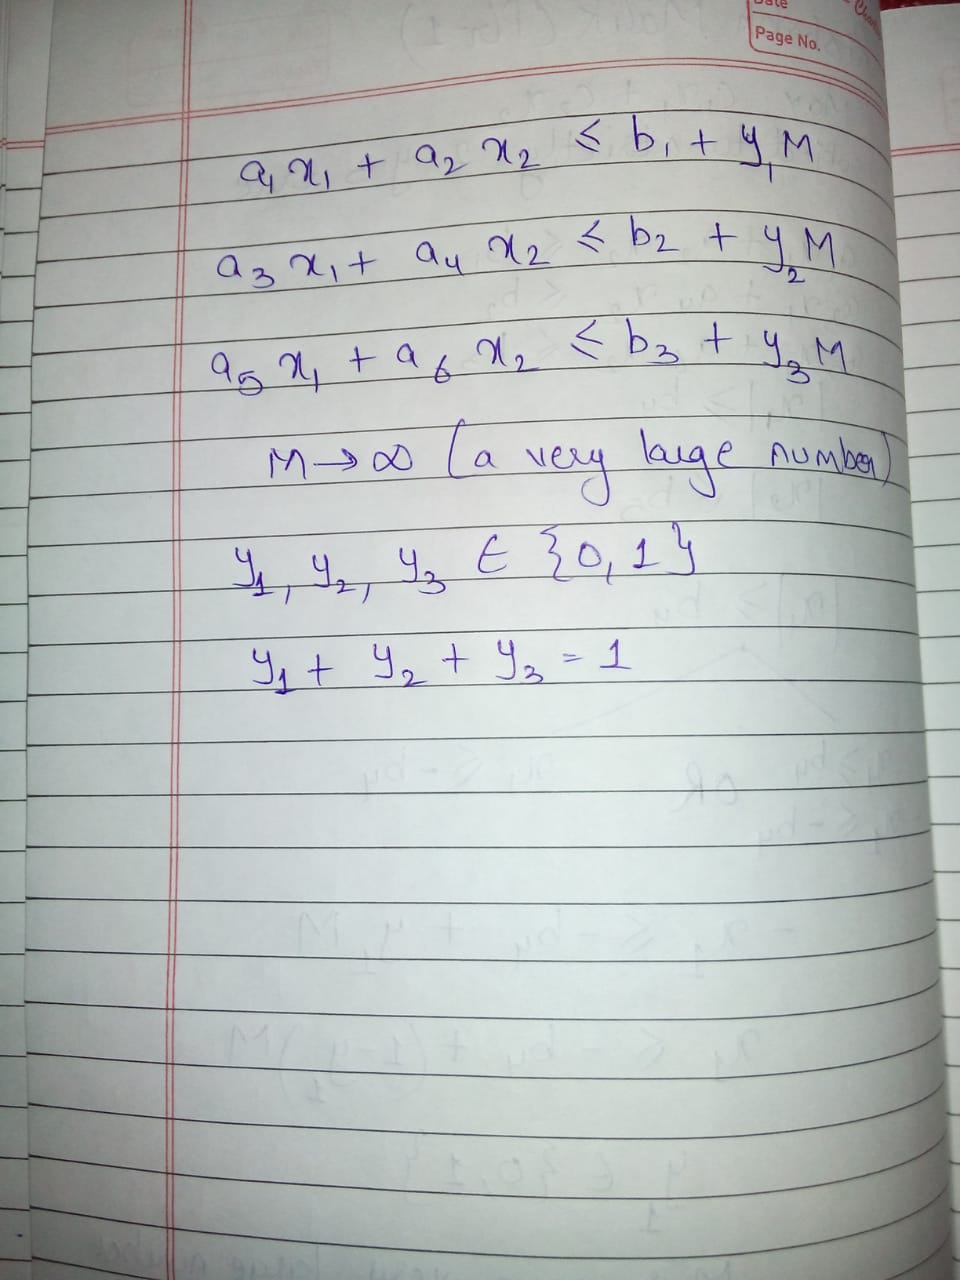 Date
Page No.
a₁ x₁ + a₂ x₂ ≤ b₁ + y₁ M
a₃ x₁ + a₄ x₂ ≤ b₂ + y₂ M
a₅ x₁ + a₆ x₂ ≤ b₃ + y₃ M
M → ∞ (a very large number)
y₁, y₂, y₃ ∈ {0, 1}
y₁ + y₂ + y₃ = 1